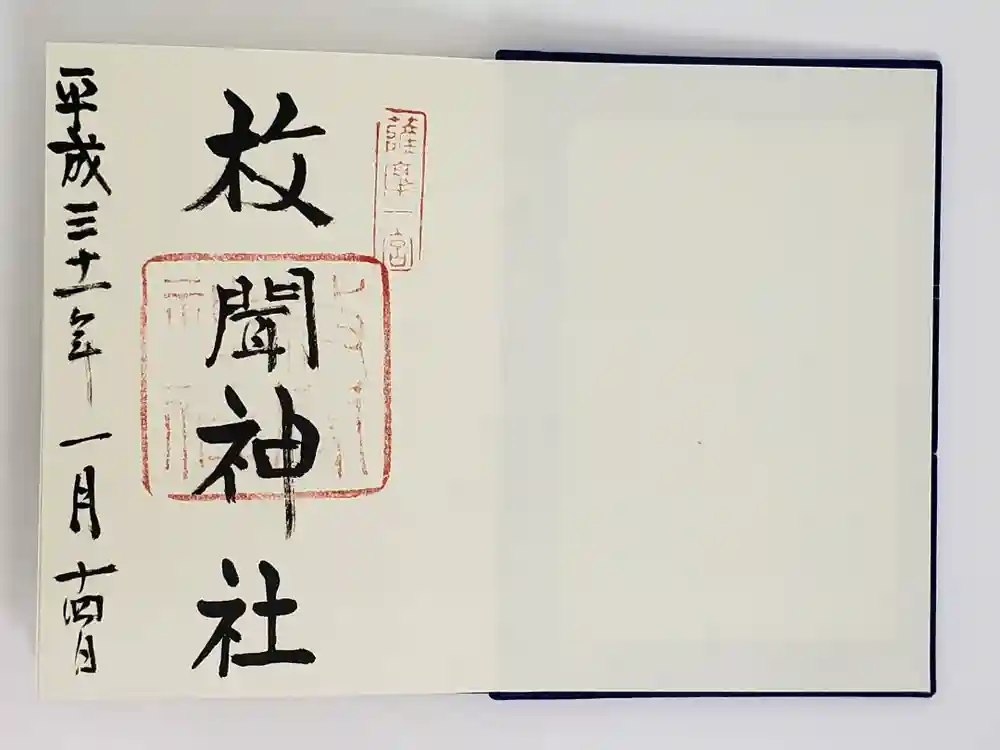 薩摩一宮
枚聞神社
平成三十一年一月十四日